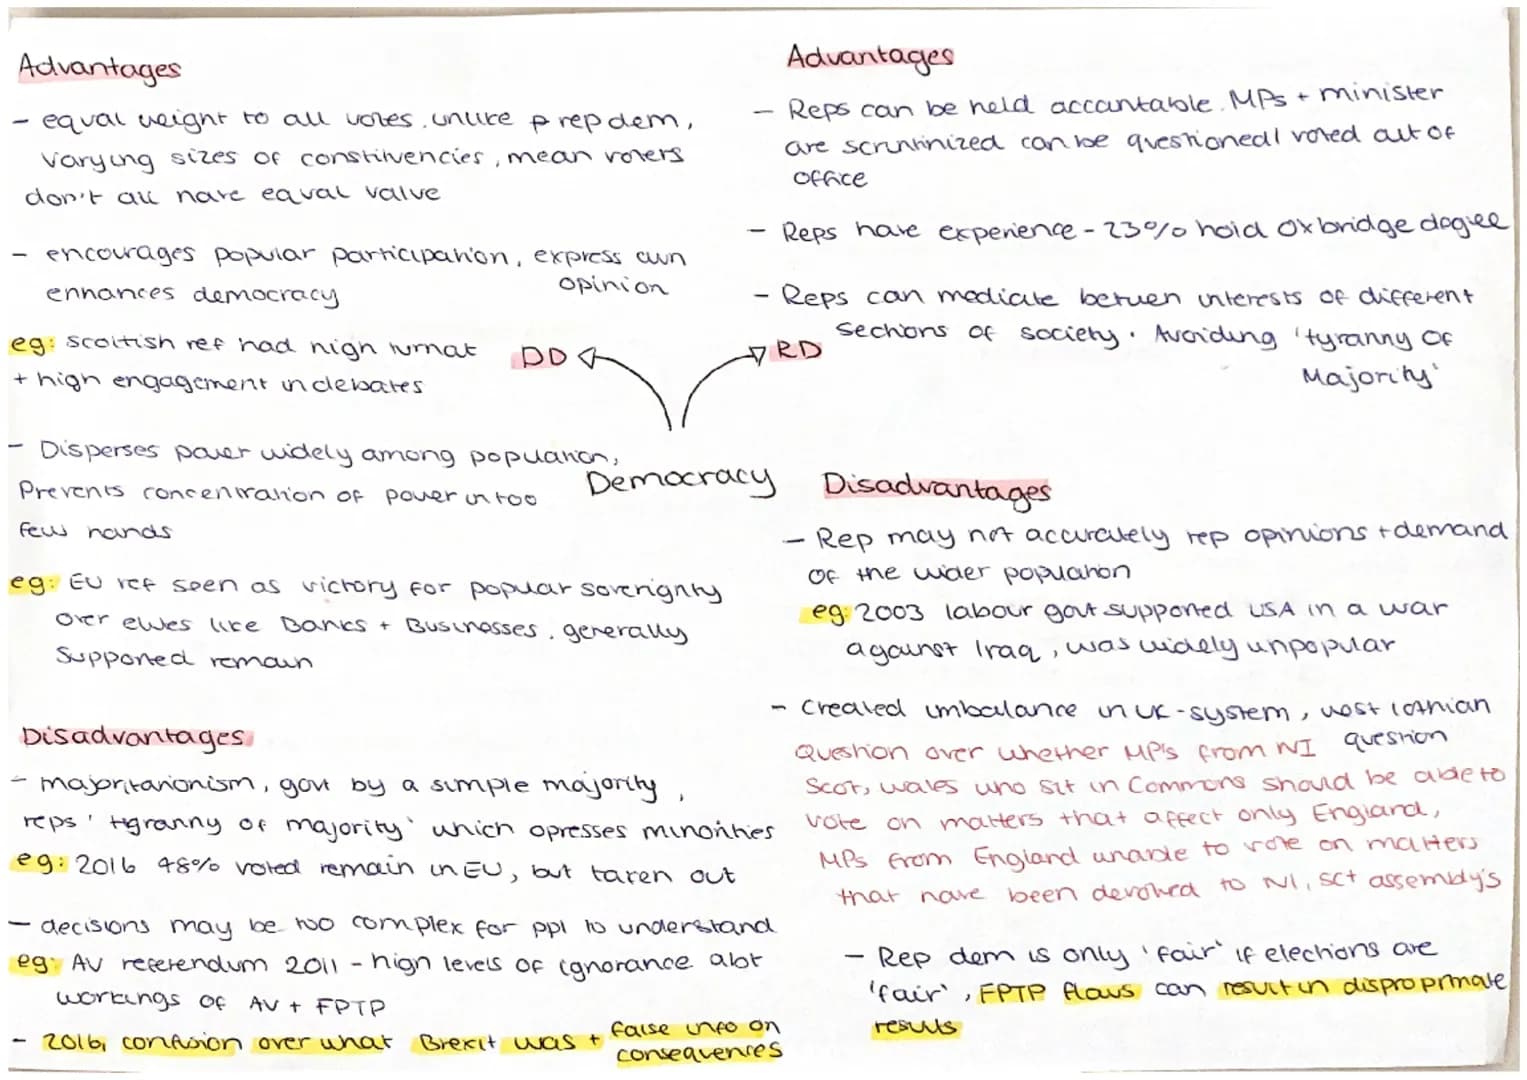 Advantages
- equal weight to all votes. unlike rep dem,
varying sizes of constituencies, mean voters
don't all have equal value
- encourages popular participation, express own
opinion
enhances democracy
eg: scoltish ref had high turnat
+ high engagement in debates
DD
- Disperses power widely among population,
Prevents concentration of power in too
few hands
eg: EU ref seen as victory for popular soverignty
over elites like Banks + Businesses. generally
Supported remain
Disadvantages
- majoritarionism, govt by a simple majority,
reps 'tyranny of majority' which opresses minorities
eg: 2016 48% voted remain in EU, but taken out
- decisions may be too complex for ppl to understand
eg: AV referendum 2011 - high levels of ignorance abt
workings of AV + FPTP
- 2016, confusion over what Brexit was + false info on
consequences
Democracy
Advantages
- Reps can be held accantable. MPs + minister
are scruntinized can be questioned/ voted out of
office
- Reps have experience - 23% hold Oxbridge degree
- Reps can mediate betwen interests of different
Sections of society. Avoiding 'tyranny of
Majority'
RD
Disadvantages
- Rep may not accurately rep opinions + demand
of the wider population
eg: 2003 labour govt supported USA in a war
against Iraq, was widely unpopular
- Created imbalance in UK-system, west lothian
question
Question over whether MP's from NI
Scot, wales who sit in Commons should be able to
vote on matters that affect only England,
MPs from England unable to vote on matters
that have been devolved to NI, sct assembly's
- Rep dem is only 'fair' if elections are
'fair', FPTP flaws can result in disproprtnate
results